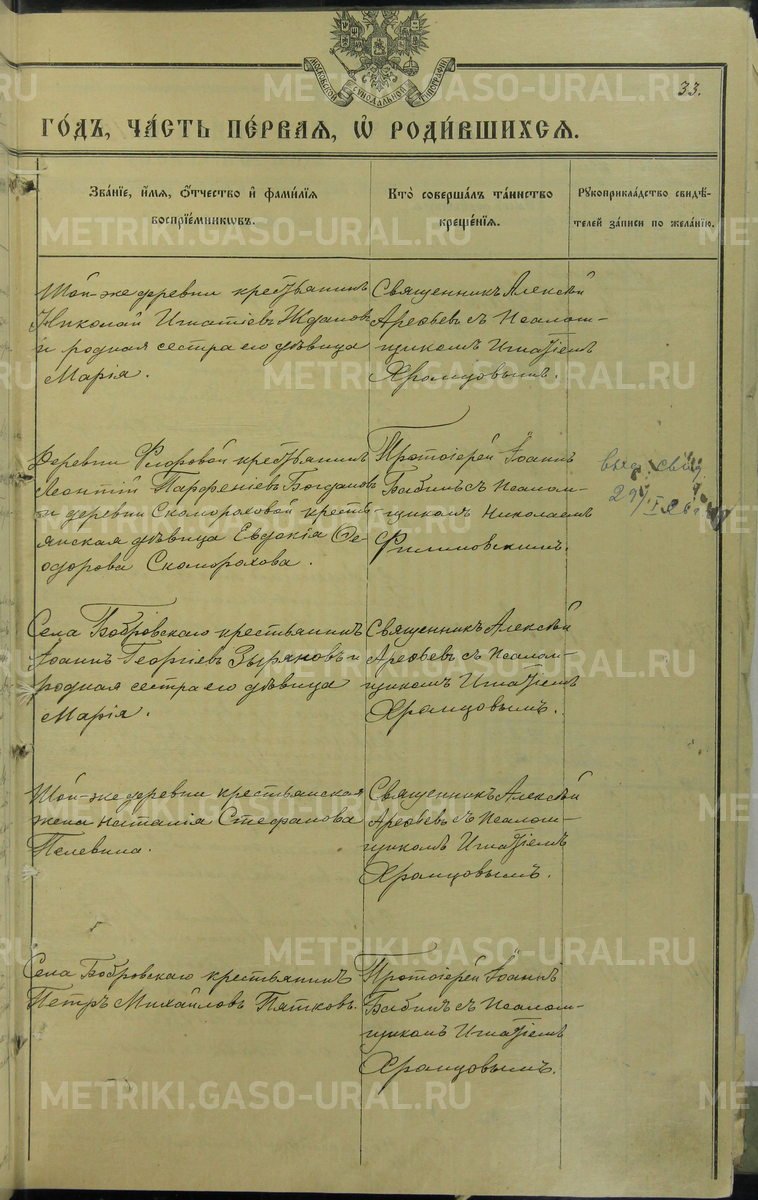 МОСКОВСКОЙ СѴНОДАЛЬНОЙ ТИПОГРАФІИ
33.
ГО́ДЪ, ЧА́СТЬ ПЕ́РВАЯ, Ѡ҆ РОДИ́ВШИХСЯ.
Зва́нїе, и҆́мя, ѻ҆́тчество и҆ фами́лїя
воспрїе́мникѡвъ.
Кто̀ соверша́лъ та́инство
креще́нїя.
Рꙋкоприкла́дство свидѣ́-
телей за́писи по жела́нїю.
Той-же деревни крестьянинъ
Николай Игнатіевъ Ждановъ
и родная сестра его дѣвица
Марія.
Священникъ Алексѣй
Арефьевъ съ псалом-
щикомъ Игнатіемъ
Храмцовымъ.
Деревни Фроровой крестьянинъ
Леонтій Парфеніевъ Богдановъ
и деревни Скомороховой кресть-
янская дѣвица Евдокія Ѳе-
одорова Скоморохова.
Протоіерей Іоаннъ
Бабинъ съ псалом-
щикомъ Николаемъ
Филимовскимъ.
выд. свид
29/I 26
Села Бобровскаго крестьянинъ
Іоаннъ Георгіевъ Зыряновъ и
родная сестра его дѣвица
Марія.
Священникъ Алексѣй
Арефьевъ съ псалом-
щикомъ Игнатіемъ
Храмцовымъ.
Той-же деревни крестьянская
жена Наталія Стефанова
Пелевина.
Священникъ Алексѣй
Арефьевъ съ псалом-
щикомъ Игнатіемъ
Храмцовымъ.
Села Бобровскаго крестьянинъ
Петръ Михайловъ Пятковъ.
Протоіерей Іоаннъ
Бабинъ съ псалом-
щикомъ Игнатіемъ
Храмцовымъ.
METRIKI.GASO-URAL.RU